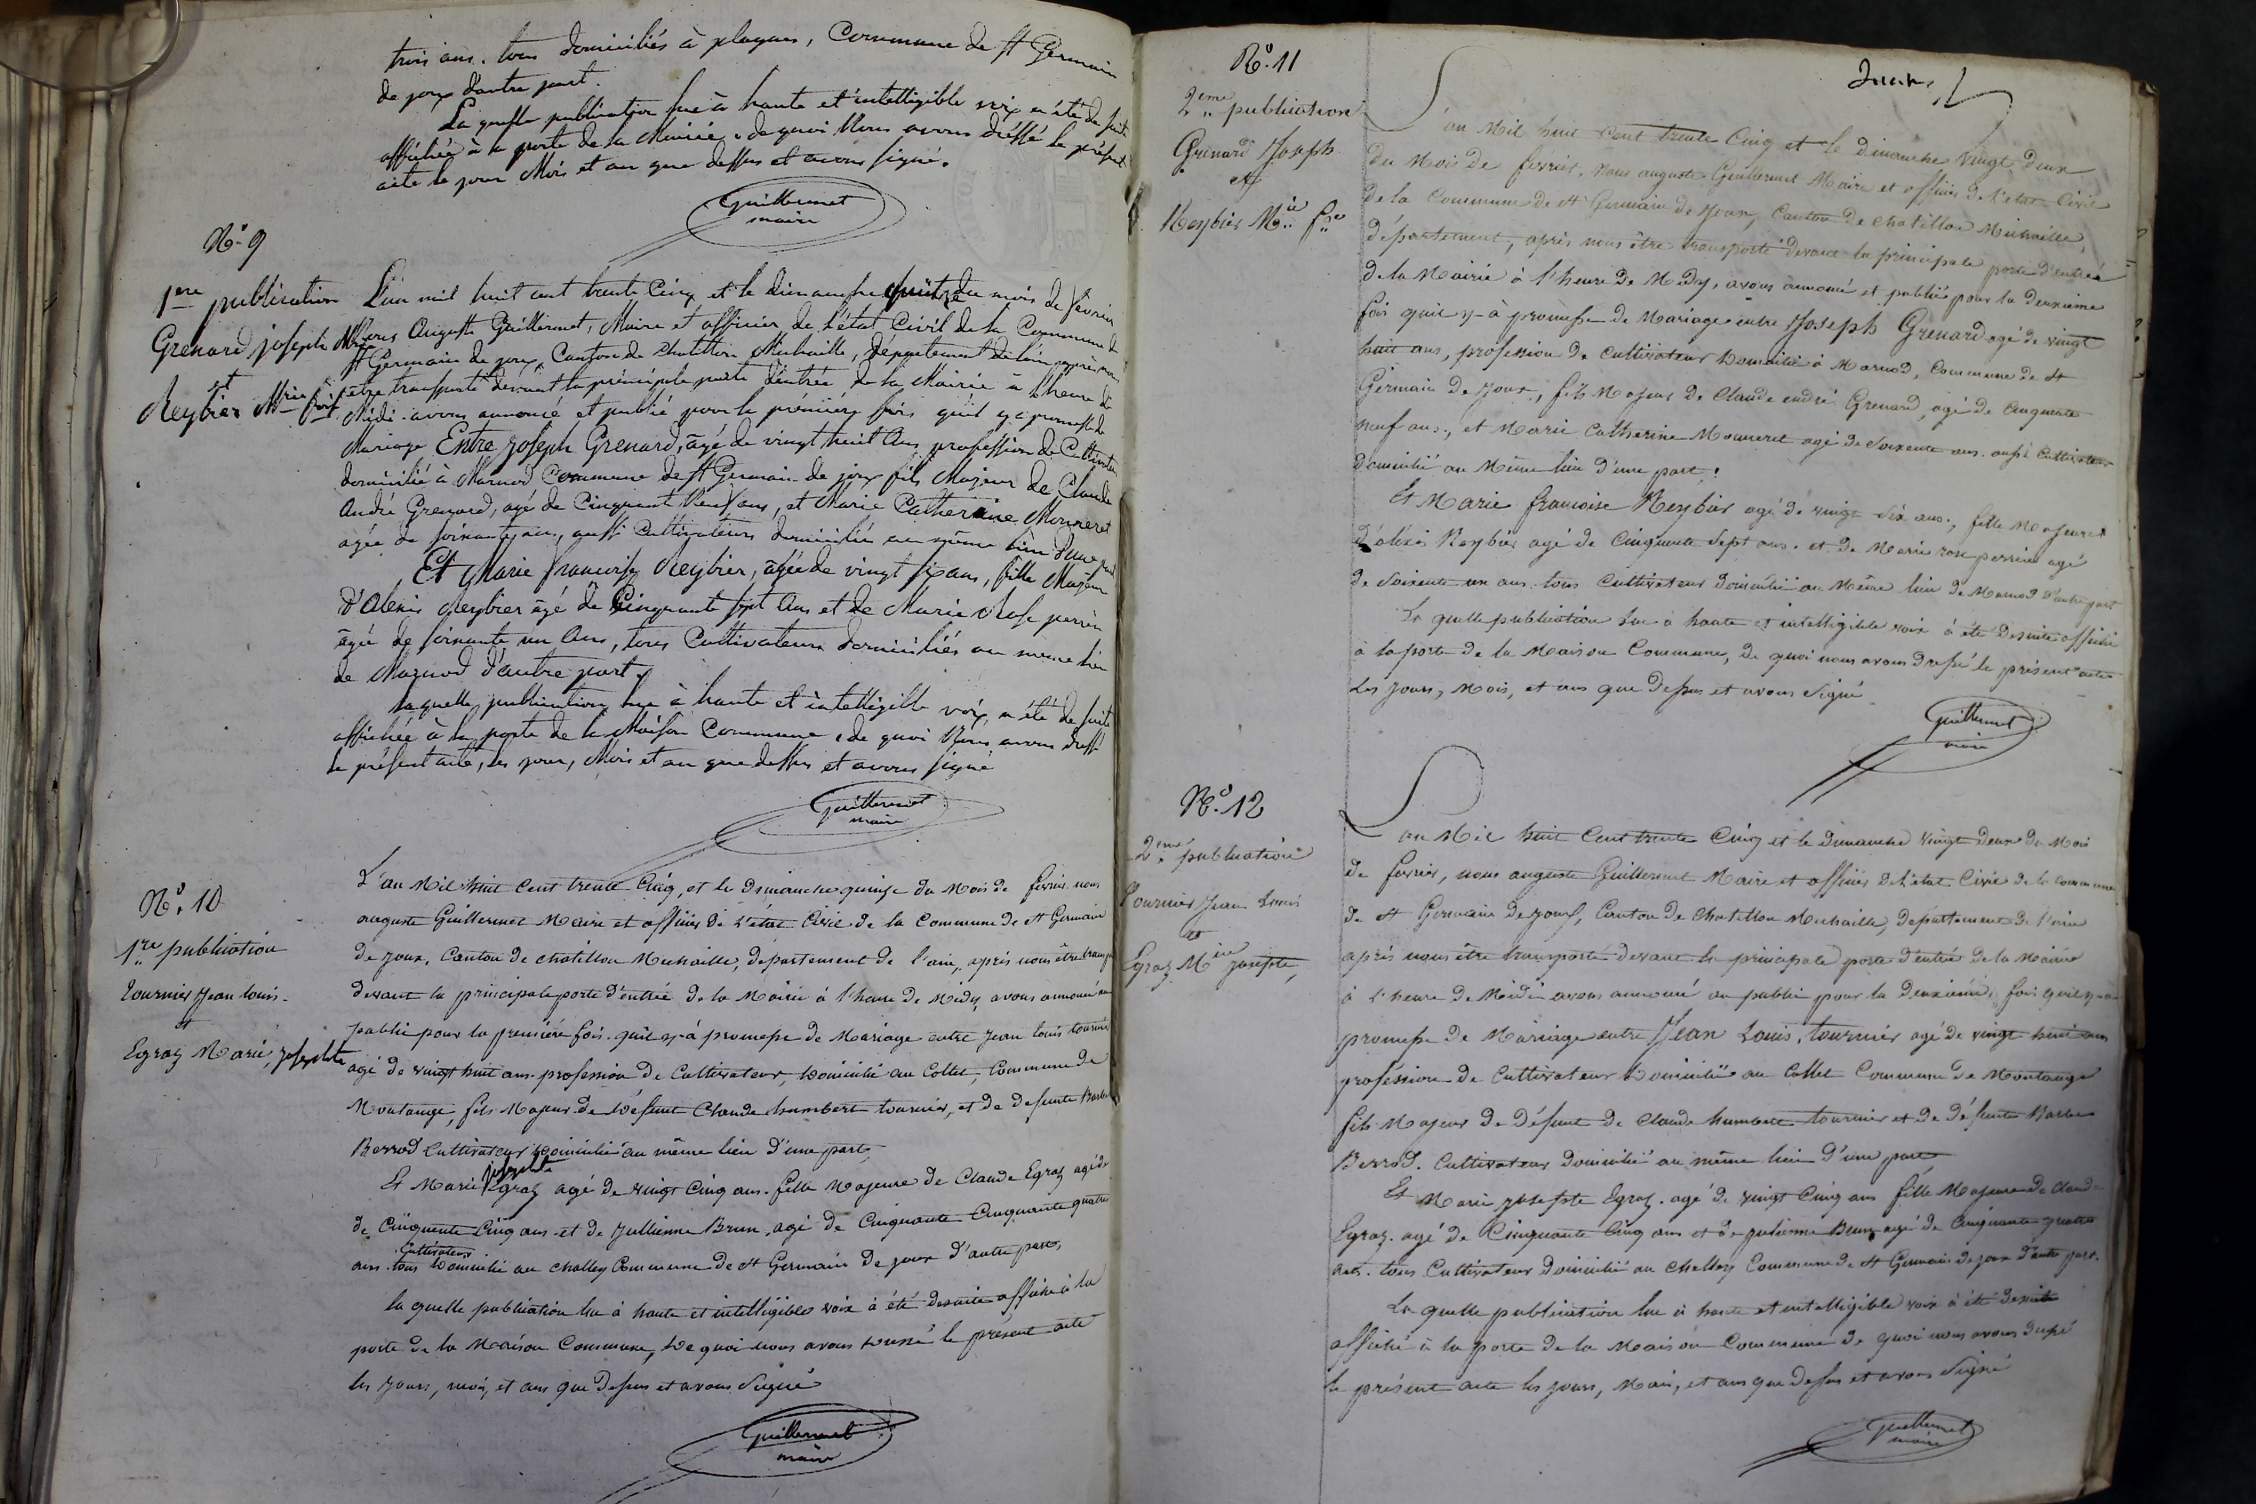 trois ans. tous domiciliés à plagnes, Commune de St Germain
de joux d'autre part.
La quelle publication lue à haute et intelligible voix a été de suite
affichée à la porte de la Mairie, de quoi Nous avons dréssé le présent
acte le jour Mois et an que dessus et avons signé.
Guillermet
maire
No. 9
1ere publication
Grenard joseph
et
Reybier Mrie fçoise
L'an mil huit cent trente Cinq et le dimanche quinze du mois de février
Nous Auguste Guillermet, Maire et officier de l'état Civil de la Commune de
St Germain de joux, Canton de Chatillon Michaille, département de l'ain après nous
être transporté devant la principale porte d'entrée de la Mairie à l'heure de
Midi. avons annoncé et publié pour la première fois qu'il y a promesse de
Mariage Entre joseph Grenard, âgé de vingt huit Ans profession de Cultivateur
domicilié à Marnod Commune de St Germain de joux fils Majeur de Claude
André Grenard, agé de Cinquant Neuf ans, et Marie Catherine Monneret
agée de soixante ans, aussi Cultivateurs domiciliés au même lieu d'une part
Et Marie françoise Reybier, âgée de vingt six ans, fille Majeure
d'Alexis Reybier âgé de Cinquante sept Ans et de Marie Rose perrin
âgé de soixante un Ans, tous Cultivateurs domiciliés au meme lieu
de Marnod d'autre part.
laquelle publication lue à haute et intelligible voix, a été de suite
affichée à la porte de la Maison Commune, de quoi Nous avons dressé
le présent acte, les jour, Mois et an que dessus et avons signé
Guillermet
maire
No. 10
1re publication
tournier Jean louis.
et
Egraz Marie, josephte
L'an Mil huit Cent trente Cinq, et le Dimanche quinze du Mois de fevrier nous
auguste Guillermet Maire et officier de L'état Civil de la Commune de St Germain
de joux. Canton de chatillon Michaille, département de l'ain, après nous être transporté
devant la principale porte d'entrée de la Mairie à l'heure de Midy, avons annoncé
publié pour la première fois. qu'il y-à promesse de Mariage entre Jean louis tournier
agé de vingt huit ans. profession de Cultivateur, Domicilié au Collet, Commune de
Montange, fils Majeur de Défunt Claude humbert tournier, et de defunte Barbe
Berrod Cultivateur Domicilié au même lieu d'une part,
Et Marie josephte Egraz agé de vingt Cinq ans. fille Majeure de Claude Egraz agé de
de Cinquante Cinq ans et de Jullienne Brun, agé de Cinquante Cinquante quatre
ans. tous Cultivateur Domicilié au challey Commune de St Germain de joux d'autre part,
la quelle publication lue à haute et intelligible voix à été desuite affiché à la
porte de la Maison Commune, De quoi nous avons Dressé le présent acte
les jours, mois, et ans que Dessus et avons Signé
Guillermet
maire
No. 11
2eme publication
Grenard Joseph
et
Reybier Mie fse
L'an Mil huit Cent trente Cinq et le Dimanche Vingt Deux
du Mois de fevrier. Nous auguste Guillermet Maire et officier de l'etat Civil
de la Commune de St Germain de Joux, Canton de Chatillon Michaille,
département, après nous être transporté devant la principale porte d'entrée
de la Mairie à l'heure de Midy, avons annoncé et publié pour la Deuxieme
fois qu'il y-à promesse de Mariage entre Joseph Grenard agé de vingt
huit ans, profession de Cultivateur Domicilié à Marnod, Commune de St
Germain de Joux, fils Majeur de Claude andré Grenard, agé de Cinquante
neuf ans, et Marie Catherine Monneret agé de Soixente ans. aussi Cultivateur
Domicilié au Même lieu d'une part.
Et Marie francoise Reybier agé de vingt Six ans., fille Majeure
d'alexis Reybier agé de Cinquante Sept ans. et de Marie rose perrin agé
de Soixente un ans. tous Cultivateur Domicilié au Même lieu de Marnod d'autre part
La quelle publication lue à haute et intelligible voix à été Desuite affiché
à la porte de la Maison Commune, De quoi nous avons Dressé le présent acte
Les Jours, Mois, et ans que Dessus et avons Signé
Guillermet
maire
No. 12
2eme publication
Tournier Jean Louis
et
Egraz Mie josephte,
L'an Mil huit Cent trente Cinq et le Dimanche vingt Deux du Mois
de fevrier, nous auguste Guillermet Maire et officier de L'état Civil de la Commune
de St Germain de Joux, Canton de Chatillon Michaille, departement de l'ain
après nous être transporté devant la principale porte d'entrée de la Mairie
à L'heure de Midi avons annoncé ou publié pour la Deuxième fois qu'il y-a
promesse de Mariage entre Jean Louis, tournier agé de vingt huit ans
profession de Cultivateur Domicilié au Collet Commune de Montange
fils Majeur de Défunt de Claude humbert tournier et de Défunte Barbe
Berrod. Cultivateur Domicilié au même lieu d'une part
Et Marie josephte Egraz. agé de vingt Cinq ans fille Majeure de Claude
Egraz. agé de Cinquante Cinq ans et de julienne Brun agé de Cinquante quatre
ans. tous Cultivateur Domicilié au Challey Commune de St Germain de joux d'autre part.
La quelle publication lue à haute et intelligible voix à été Desuite
affiché à la porte de la Maison Commune de quoi nous avons dressé
le présent acte les jours, Mois, et ans que Dessus et avons Signé
Guillermet
maire